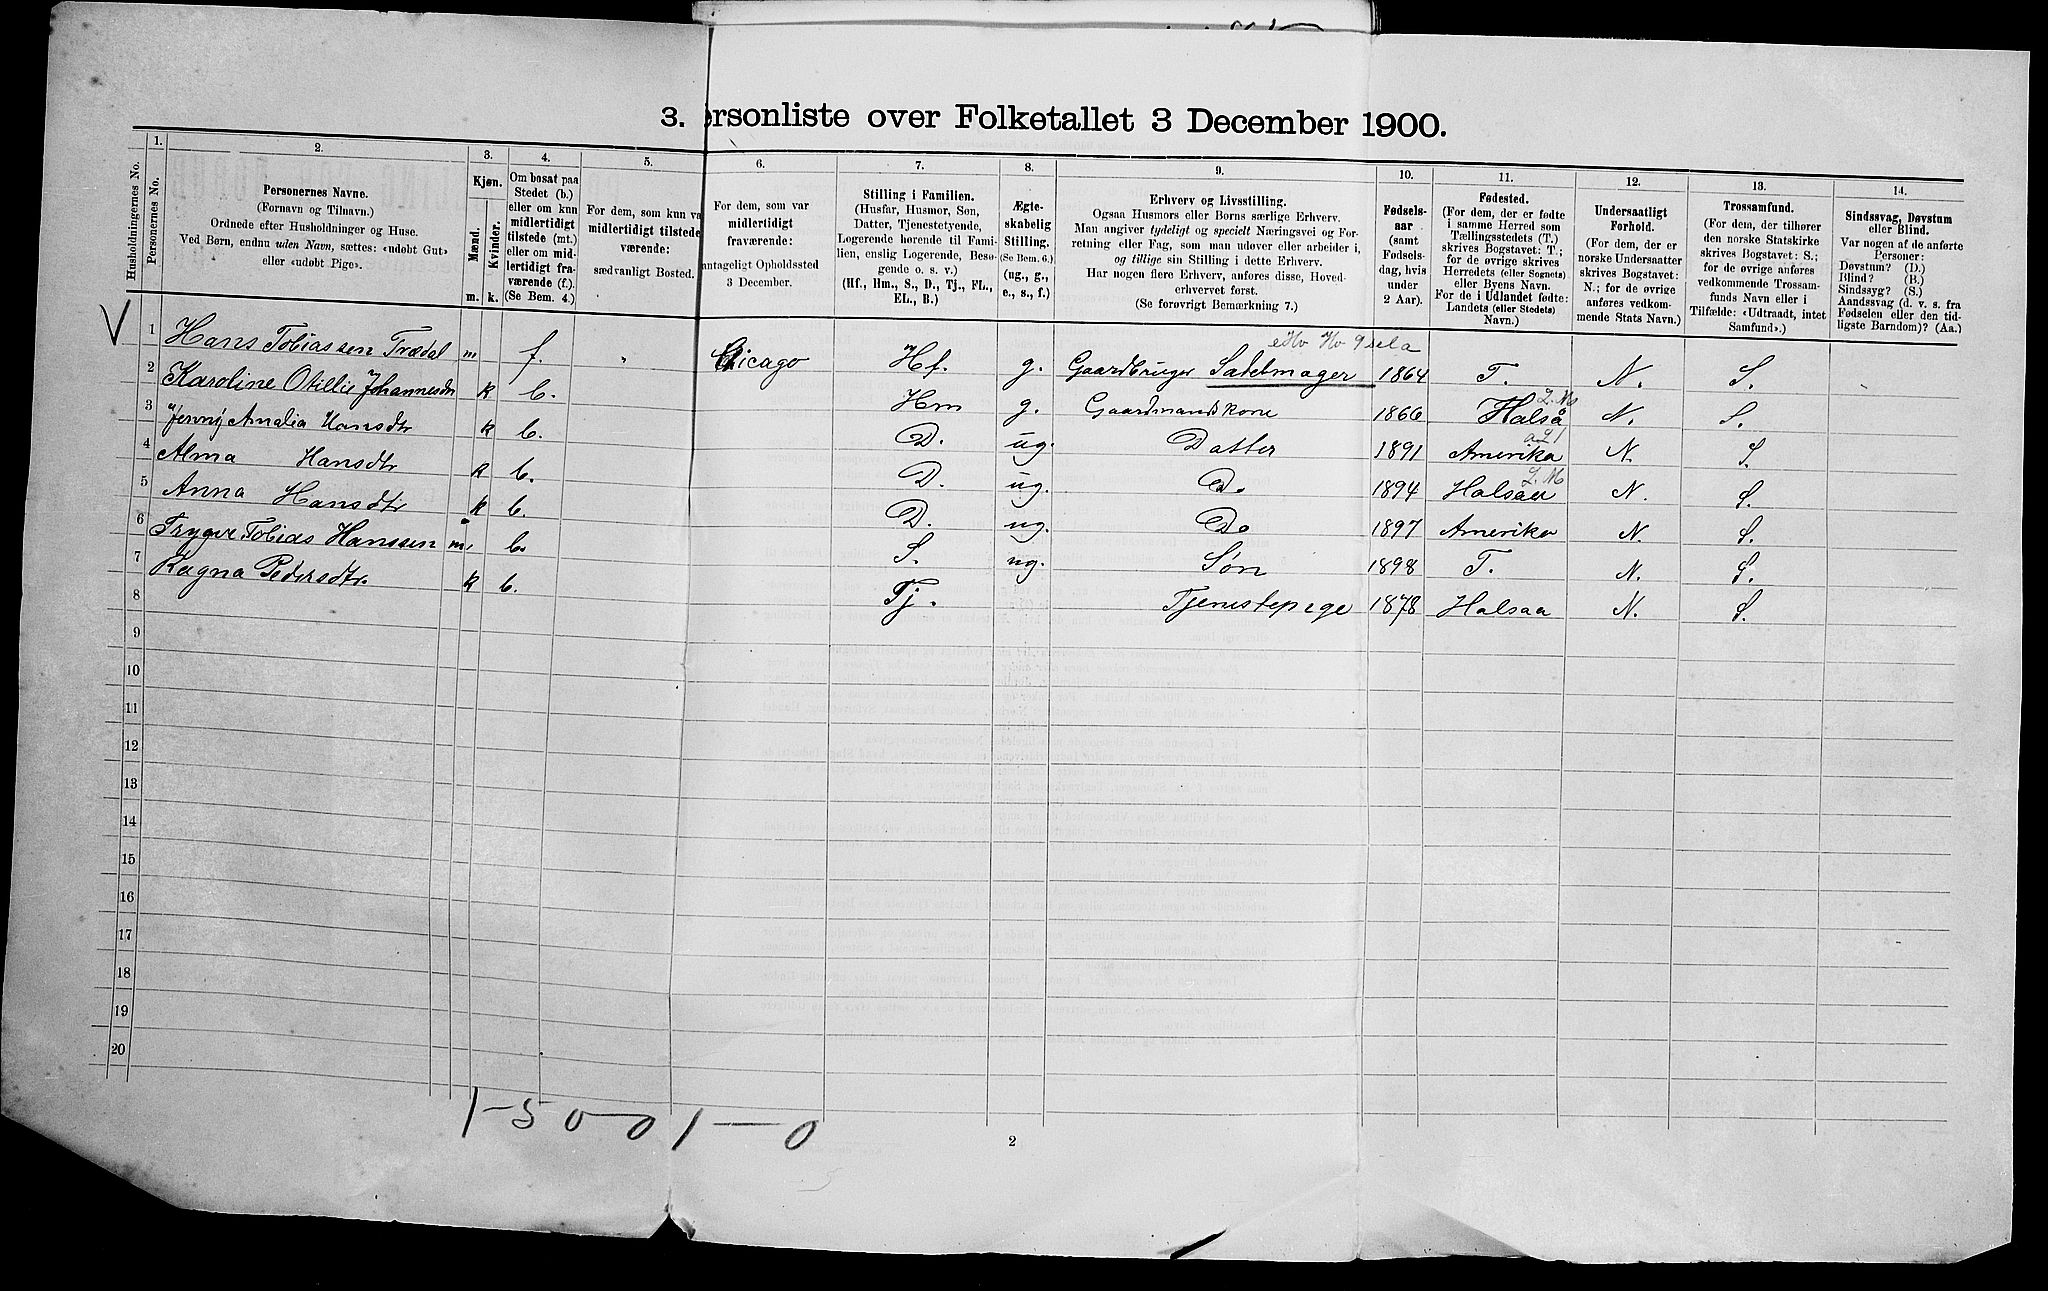 3. Personliste over Folketallet 3 December 1900.
Husholdningernes No.
1. Personernes No.
2. Personernes Navne.
(Fornavn og Tilnavn.)
Ordnede efter Husholdninger og Huse.
Ved Børn, endnu uden Navn, sættes: «udøbt Gut»
eller «udøbt Pige».
3. Kjøn.
Mænd. Kvinder.
m. k.
4. Om bosat paa
Stedet (b.)
eller om kun
midlertidigt
tilstede (mt.)
eller om mid-
lertidigt fra-
værende (f.).
(Se Bem. 4.)
5. For dem, som kun va
midlertidigt tilstede
værende:
sædvanligt Bosted.
6. For dem, som var
midlertidigt
fraværende:
antageligt Opholdssted
3 December.
7. Stilling i Familien.
(Husfar, Husmor, Søn,
Datter, Tjenestetyende,
Logerende hørende til Fami-
lien, enslig Logerende, Besø-
gende o. s. v.)
(Hf., Hm., S., D., Tj., FL.,
EL., B.)
8. Ægte-
skabelig
Stilling.
(Se Bem. 6.)
(ug., g.,
e., s., f.)
9. Erhverv og Livsstilling.
Ogsaa Husmors eller Børns særlige Erhverv.
Man angiver tydeligt og specielt Næringsvei og For-
retning eller Fag, som man udøver eller arbeider i,
og tillige sin Stilling i dette Erhverv.
Har nogen flere Erhverv, anføres disse, Hoved-
erhvervet først.
(Se forøvrigt Bemærkning 7.)
10. Fødsels-
aar
(samt
Fødsels-
dag, hvis
under
2 Aar).
11. Fødested.
(For dem, der er fødte
i samme Herred som
Tællingsstedets (T.)
skrives Bogstavet: T.;
for de øvrige skrives
Herredets (eller Sognets)
eller Byens Navn.
For de i Udlandet fødte:
Landets (eller Stedets)
Navn.)
12. Undersaatligt
Forhold.
(For dem, der er
norske Undersaatter
skrives Bogstavet:
N.; for de øvrige
anføres vedkom-
mende Stats Navn.)
13. Trossamfund.
(For dem, der tilhører
den norske Statskirke
skrives Bogstavet: S.;
for de øvrige anføres
vedkommende Trossam-
funds Navn eller i
Tilfælde: «Udtraadt, intet
Samfund».)
14. Sindssvag, Døvstum
eller Blind.
Var nogen af de anførte
Personer:
Døvstum? (D.)
Blind? (B.)
Sindssyg? (S.)
Aandssvag (d. v. s. fra
Fødselen eller den tid-
ligste Barndom)? (Aa.)
1 Hans Tobiassen Trædal m f. " Chicago Hf. g. Gaardbruger Sadelmager 1864 T. N. S.
2 Karoline Otillie Johannesdtr k b. Hm g. Gaardmandskone 1866 Halså N. S.
3 Jenny Amalia Hansdtr k b. D. ug. Datter 1891 Amerika N. S.
4 Alma Hansdtr k b. D. ug. Do 1894 Halsaa N. S.
5 Anna Hansdtr k b. D. ug. Do 1897 Amerika N. S.
6 Trygve Tobias Hanssen m. b. S. ug. Søn 1898 T. N. S.
7 Ragna Pedersdtr k b. Tj. Tjenestepige 1878 Halsaa N. S.
8
9
10
11
12
13
14
15
16
17
18
19
20
1-5 0-0 1-0
2